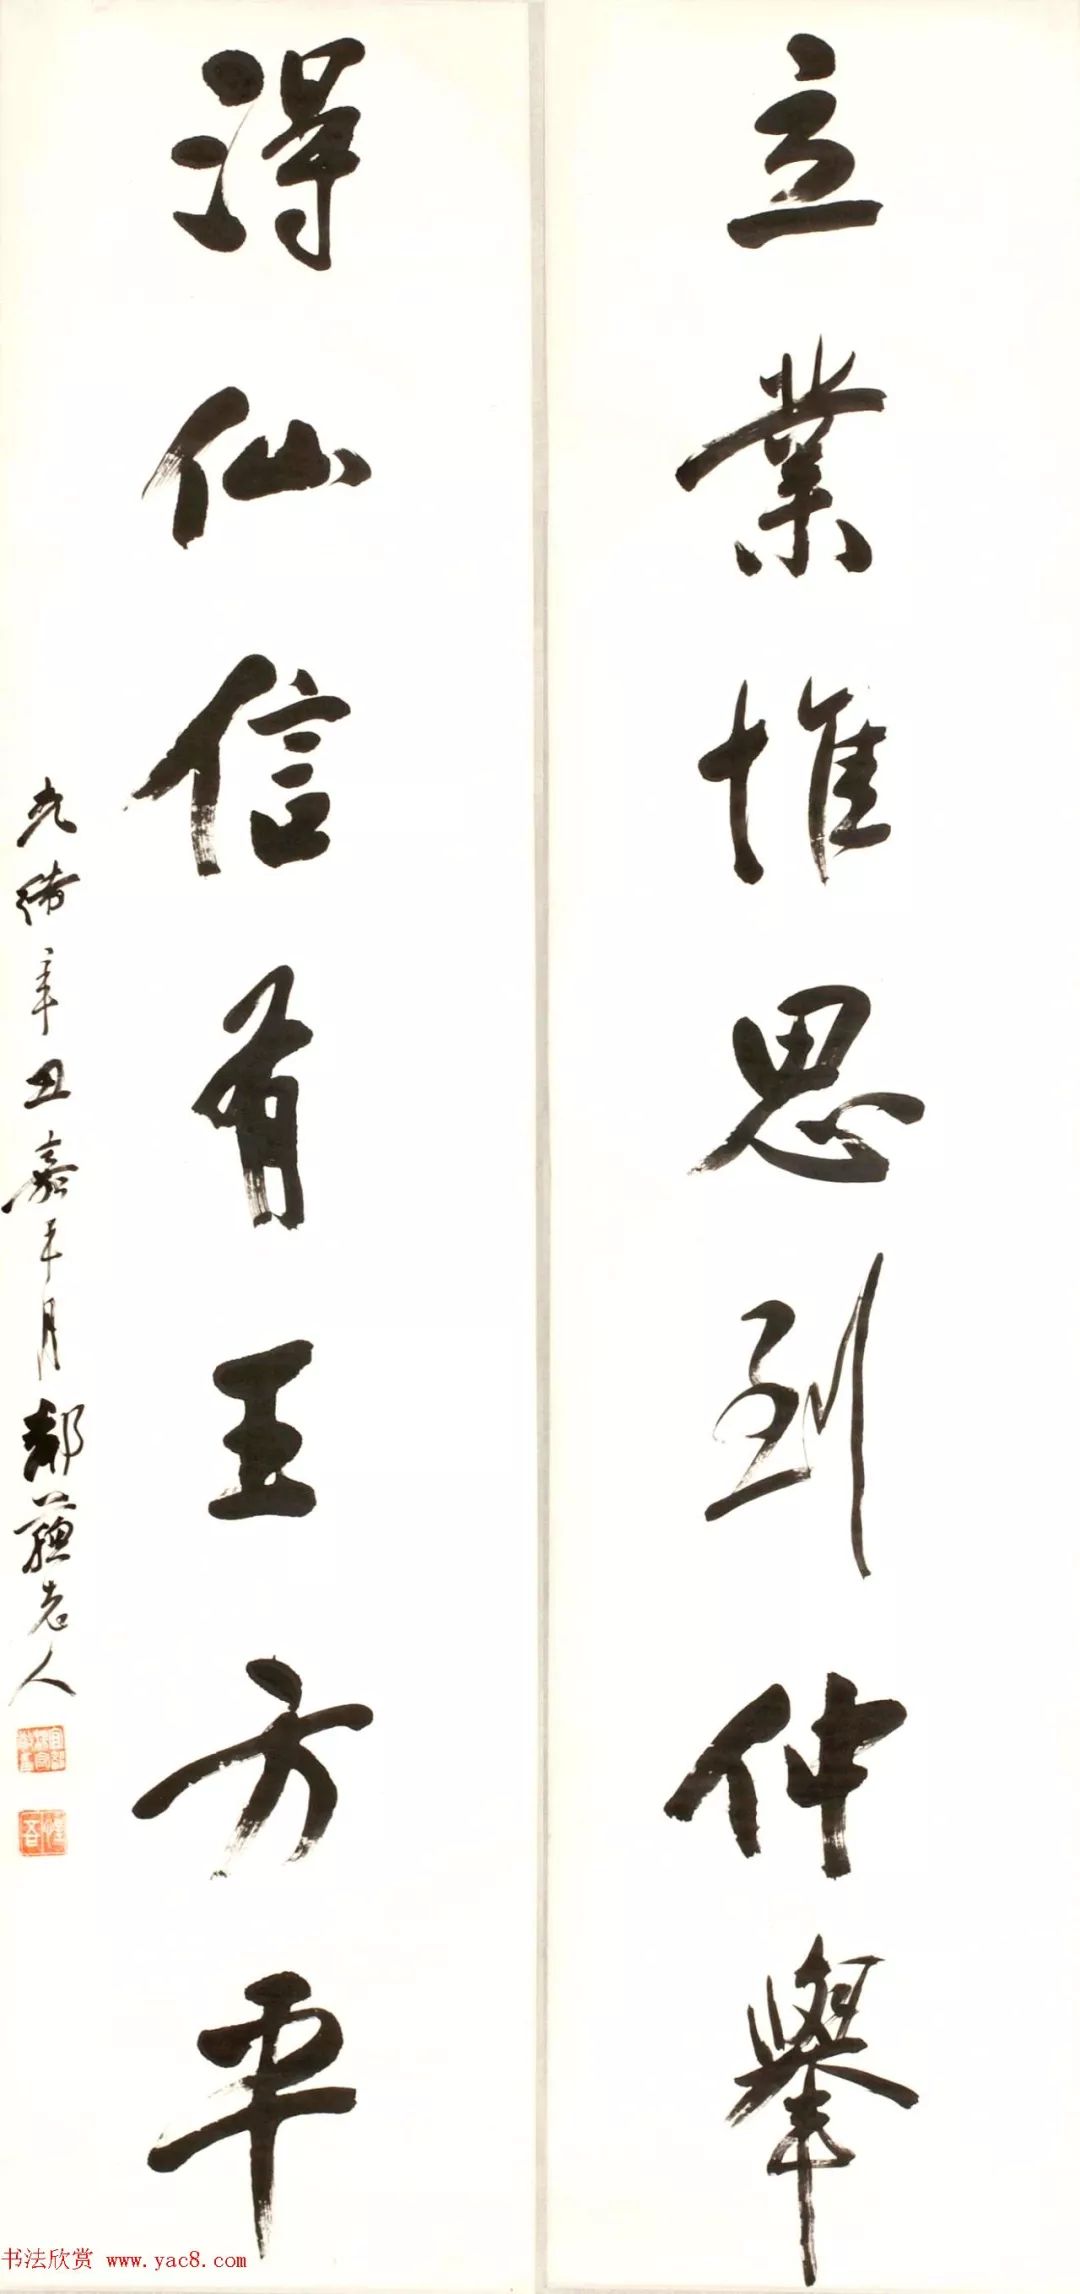 立業惟思到仲舉
得仙信有王方平
光緒辛丑嘉平月鄰蘇老人
书法欣赏 www.yac8.com